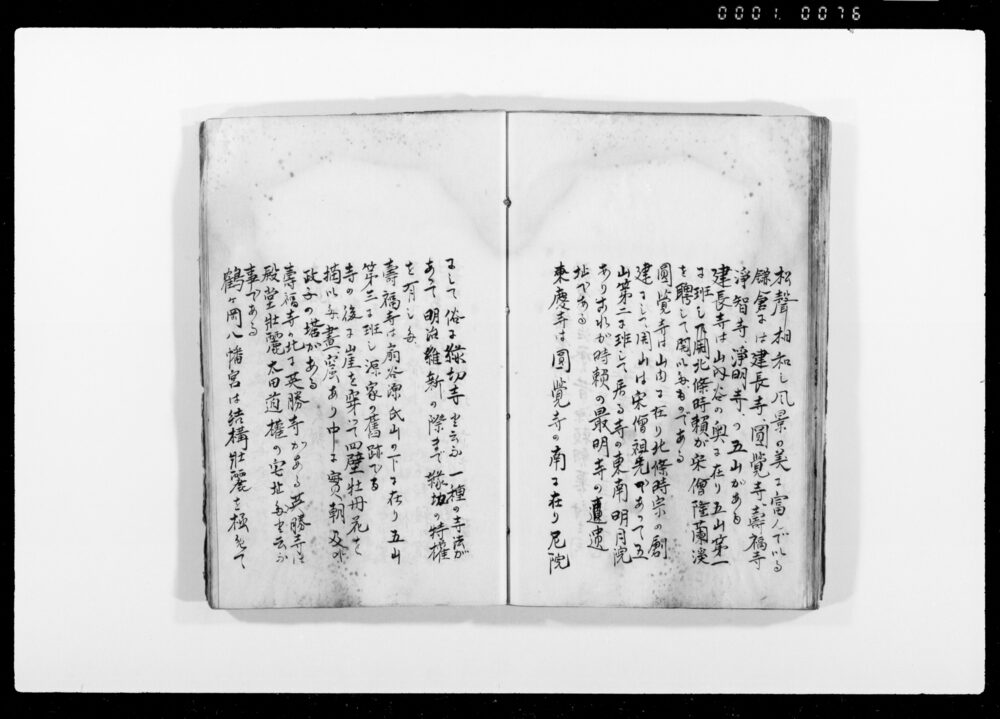 0001 0076
松聲相和し風景の美に富んでいる
鎌倉には建長寺、圓覺寺、壽福寺
淨智寺、淨明寺、の五山がある
建長寺は山ノ内谷の奥に在り五山第一
に班し開北條時賴が宋僧隆蘭溪
を聘して開いたものである
圓覺寺は山内に在り北條時宗の創
建にして開山は宋僧祖先であって五
山第二に班して居る寺の東南明月院
ありこれが時賴の最明寺の遺
址である
東慶寺は圓覺寺の南に在り尼院
にして俗に緣切寺と云ふ一種の寺法が
あって明治維新の際まで緣切の特權
を有した
壽福寺は扇谷源氏山の下に在り五山
第三に班し源家の舊跡である
寺の後に崖を穿って四壁牡丹花を
描いた畫窟あり中に實朝及び
政子の塔がある
壽福寺の北に英勝寺がある英勝寺は
殿堂壯麗太田道權の宅址だと云ふ
事である
鶴ヶ岡八幡宮は結構壯麗を極めて